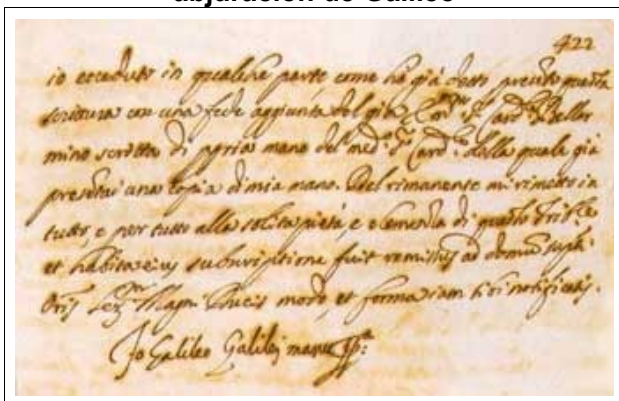 abjuración de Galileo
422
io ecceduto in qualche parte come ho già detto presento questa
scrittura con una fede aggiunta del già Em.mo S.r Card.l Bellar
mino scritta di propria mano del med.mo S.r Card.le della quale già
presentai una copia di mia mano. Del rimanente mi rimetto in
tutto, e per tutto alla solita pietà, e clemenza di questo Trib.le
et habita eius subscriptione fuit remissus ad domum supti
Oris Ser.mi Magni Ducis modo, et forma iam sibi notificatis.
Io Galileo Galilei manu pp.a